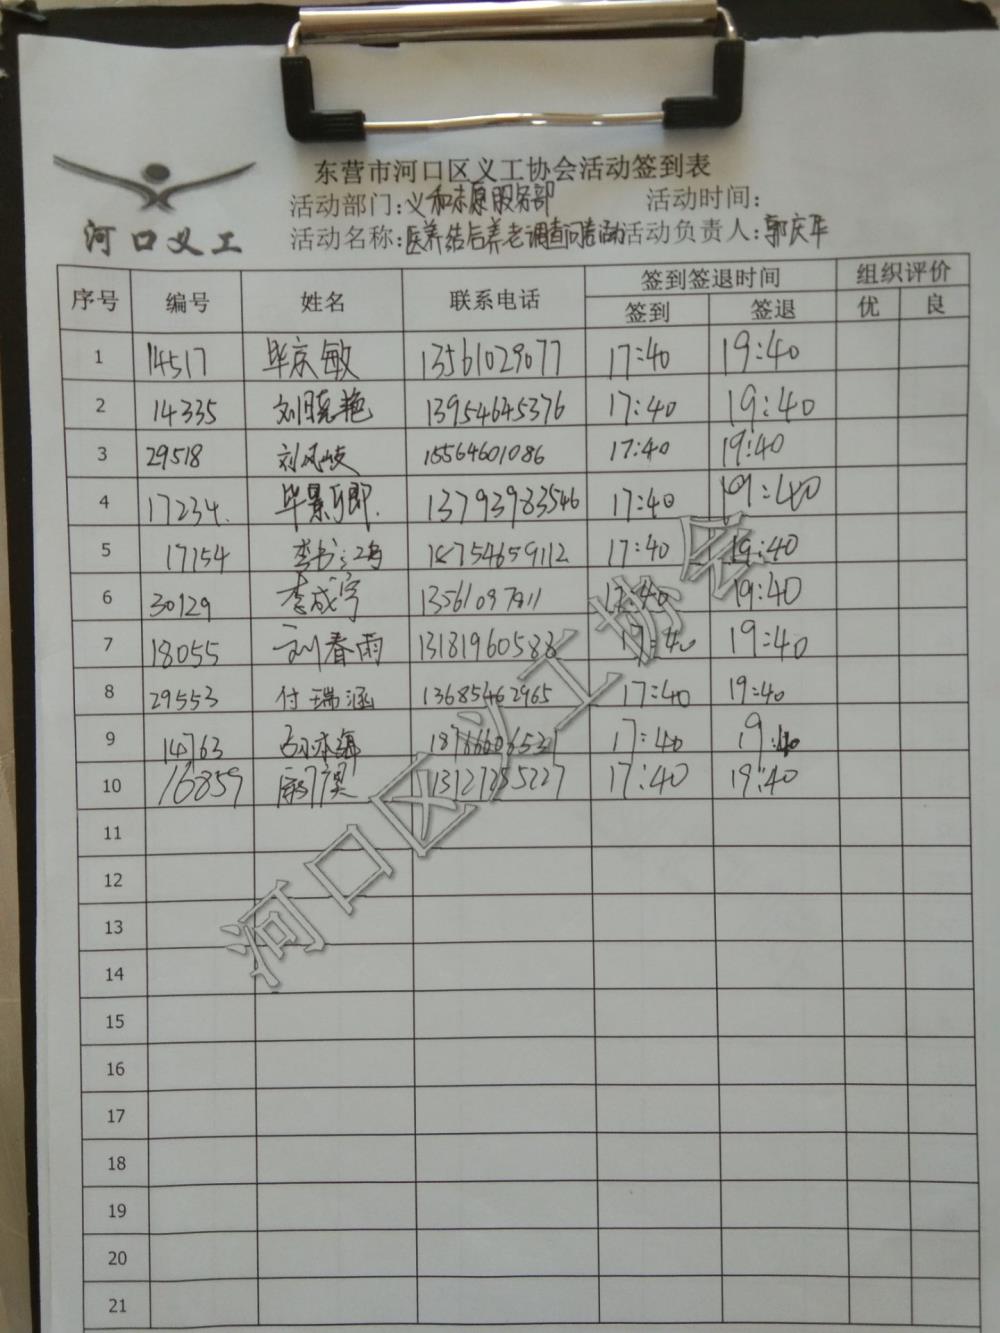 东营市河口区义工协会活动签到表
活动部门:义和木原服务部 活动时间:
河口义工 活动名称:医养结合养老调查问卷活动 活动负责人:郭庆华
序号 编号 姓名 联系电话 签到签退时间 组织评价
签到 签退 优 良
1 14517 毕京敏 13561029077 17:40 19:40
2 14335 刘晓艳 13954645376 17:40 19:40
3 29518 刘凤岐 15564601086 17:40 19:40
4 17234. 毕景 13793983546 17:40 19:40
5 17154 李书 18754659112 17:40 19:40
6 30129 李成宇 17:40 19:40
7 18055 刘春雨 13181960588 17:40 19:40
8 29553 付瑞涵 13685462965 17:40 19:40
9 14763 17:40 19:40
10 16859 17:40 19:40
11
12
13
14
15
16
17
18
19
20
21
河口区义工协会